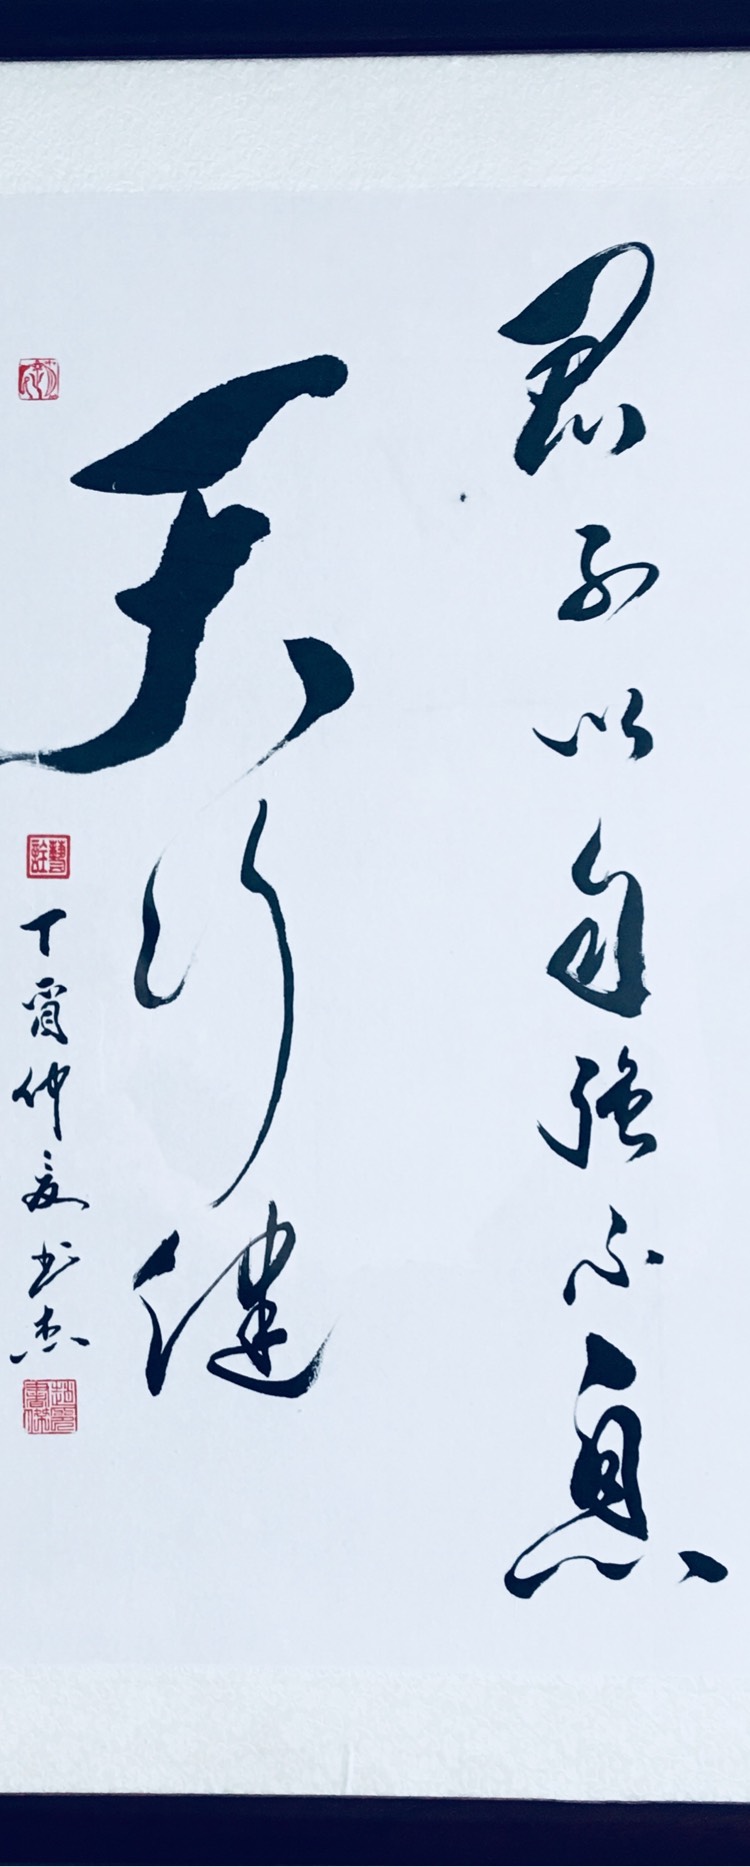 君子以自強不息
天行健
丁酉仲夏书杰